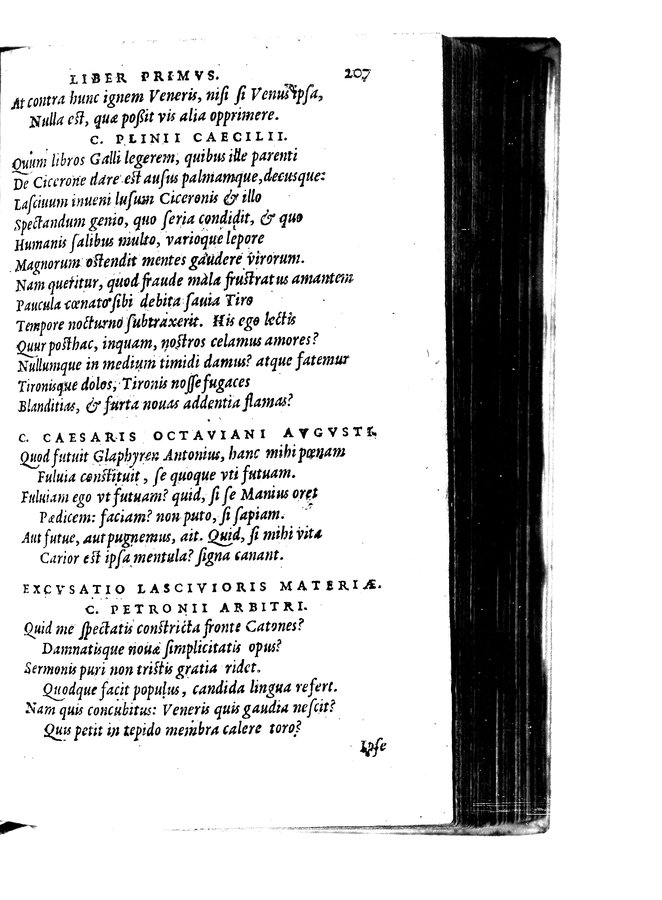 LIBER PRIMVS. 207
At contra hunc ignem Veneris, niſi ſi Venus ipſa,
Nulla eſt, quæ poßit vis alia opprimere.
C. PLINII CAECILII.
Quum libros Galli legerem, quibus ille parenti
De Cicerone dare eſt auſus palmamque, decusque:
Laſciuum inueni luſum Ciceronis & illo
Spectandum genio, quo ſeria condidit, & quo
Humanis ſalibus multo, varioque lepore
Magnorum oſtendit mentes gaudere virorum.
Nam queritur, quod fraude mala fruſtratus amantem
Paucula cœnato ſibi debita ſauia Tiro
Tempore nocturno ſubtraxerit. His ego lectis
Quur poſthac, inquam, noſtros celamus amores?
Nullumque in medium timidi damus? atque fatemur
Tironisque dolos, Tironis noſſe fugaces
Blanditias, & furta nouas addentia flamas?
C. CAESARIS OCTAVIANI AVGVSTI.
Quod futuit Glaphyren Antonius, hanc mihi pœnam
Fuluia conſtituit, ſe quoque vti futuam.
Fuluiam ego vt futuam? quid, ſi ſe Manius oret
Pædicem: faciam? non puto, ſi ſapiam.
Aut futue, aut pugnemus, ait. Quid, ſi mihi vita
Carior eſt ipſa mentula? ſigna canant.
EXCVSATIO LASCIVIORIS MATERIÆ.
C. PETRONII ARBITRI.
Quid me ſpectatis conſtricta fronte Catones?
Damnatisque nouæ ſimplicitatis opus?
Sermonis puri non triſtis gratia ridet.
Quodque facit populus, candida lingua refert.
Nam quis concubitus: Veneris quis gaudia neſcit?
Quis petit in tepido membra calere toro?
Ipſe